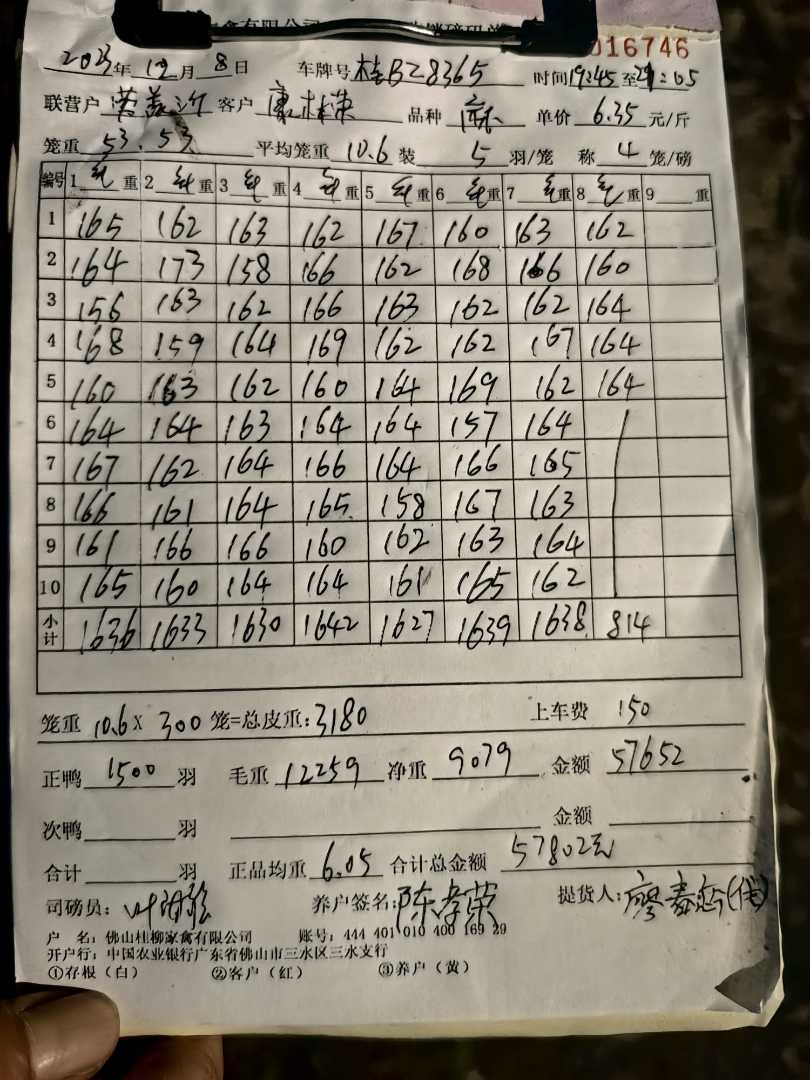 禽有限公司
016746
2023年12月8日 车牌号桂BZ8365 时间19:45至21:05
联营户 客户 康林荣 品种 麻 单价 6.35 元/斤
笼重 53.53 平均笼重 10.6 装 5 羽/笼 称 4 笼/磅
编号 1 毛重 2 毛重 3 毛重 4 毛重 5 毛重 6 毛重 7 毛重 8 毛重 9 重
1 165 162 163 162 167 160 163 162
2 164 173 158 166 162 168 166 160
3 156 163 162 166 163 162 162 164
4 168 159 164 169 162 162 167 164
5 160 163 162 160 164 169 162 164
6 164 164 163 164 164 157 164
7 167 162 164 166 164 166 165
8 166 161 164 165 158 167 163
9 161 166 166 160 162 163 164
10 165 160 164 164 161 165 162
小计 1636 1633 1630 1642 1627 1639 1638 814
笼重 10.6 X 300 笼=总皮重:3180 上车费 150
正鸭 1500 羽 毛重 12259 净重 9079 金额 57652
次鸭 羽 金额
合计 羽 正品均重 6.05 合计总金额 57802元
司磅员: 养户签名:陈孝荣 提货人:廖(代)
户 名:佛山桂柳家禽有限公司 账号:444 401 010 400 169 29
开户行:中国农业银行广东省佛山市三水区三水支行
①存根(白) ②客户(红) ③养户(黄)